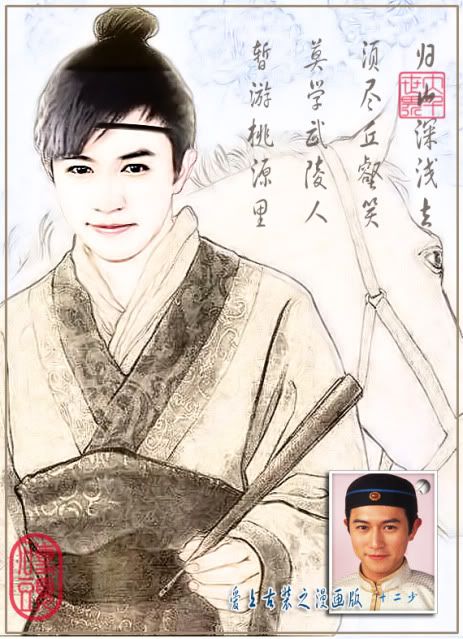 归山深浅去
须尽丘壑美
莫学武陵人
暂游桃源里
爱上古装之漫画版 十二少